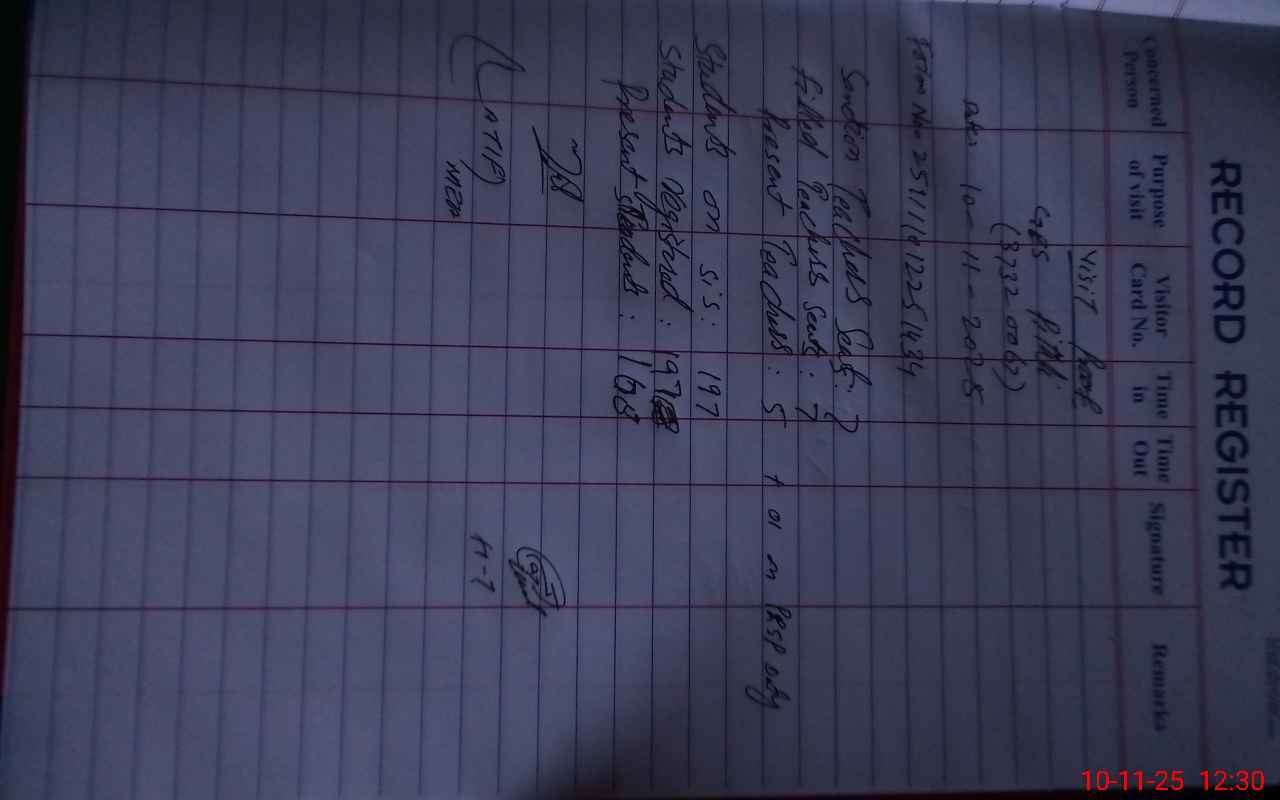 RECORD REGISTER
Concerned Person
Purpose of visit
Visitor Card No.
Time in
Time Out
Signature
Remarks
Visit Proof
(37320062)
Date: 10-11-2025
Sanction Teachers Seat: 7
filled Teachers Seats: 7
Present Teachers: 5 + 01 on
only
Students on SIS: 197
Students registered: 197
Present Students: 168
(ATIF)
MEA
H-T
10-11-25 12:30